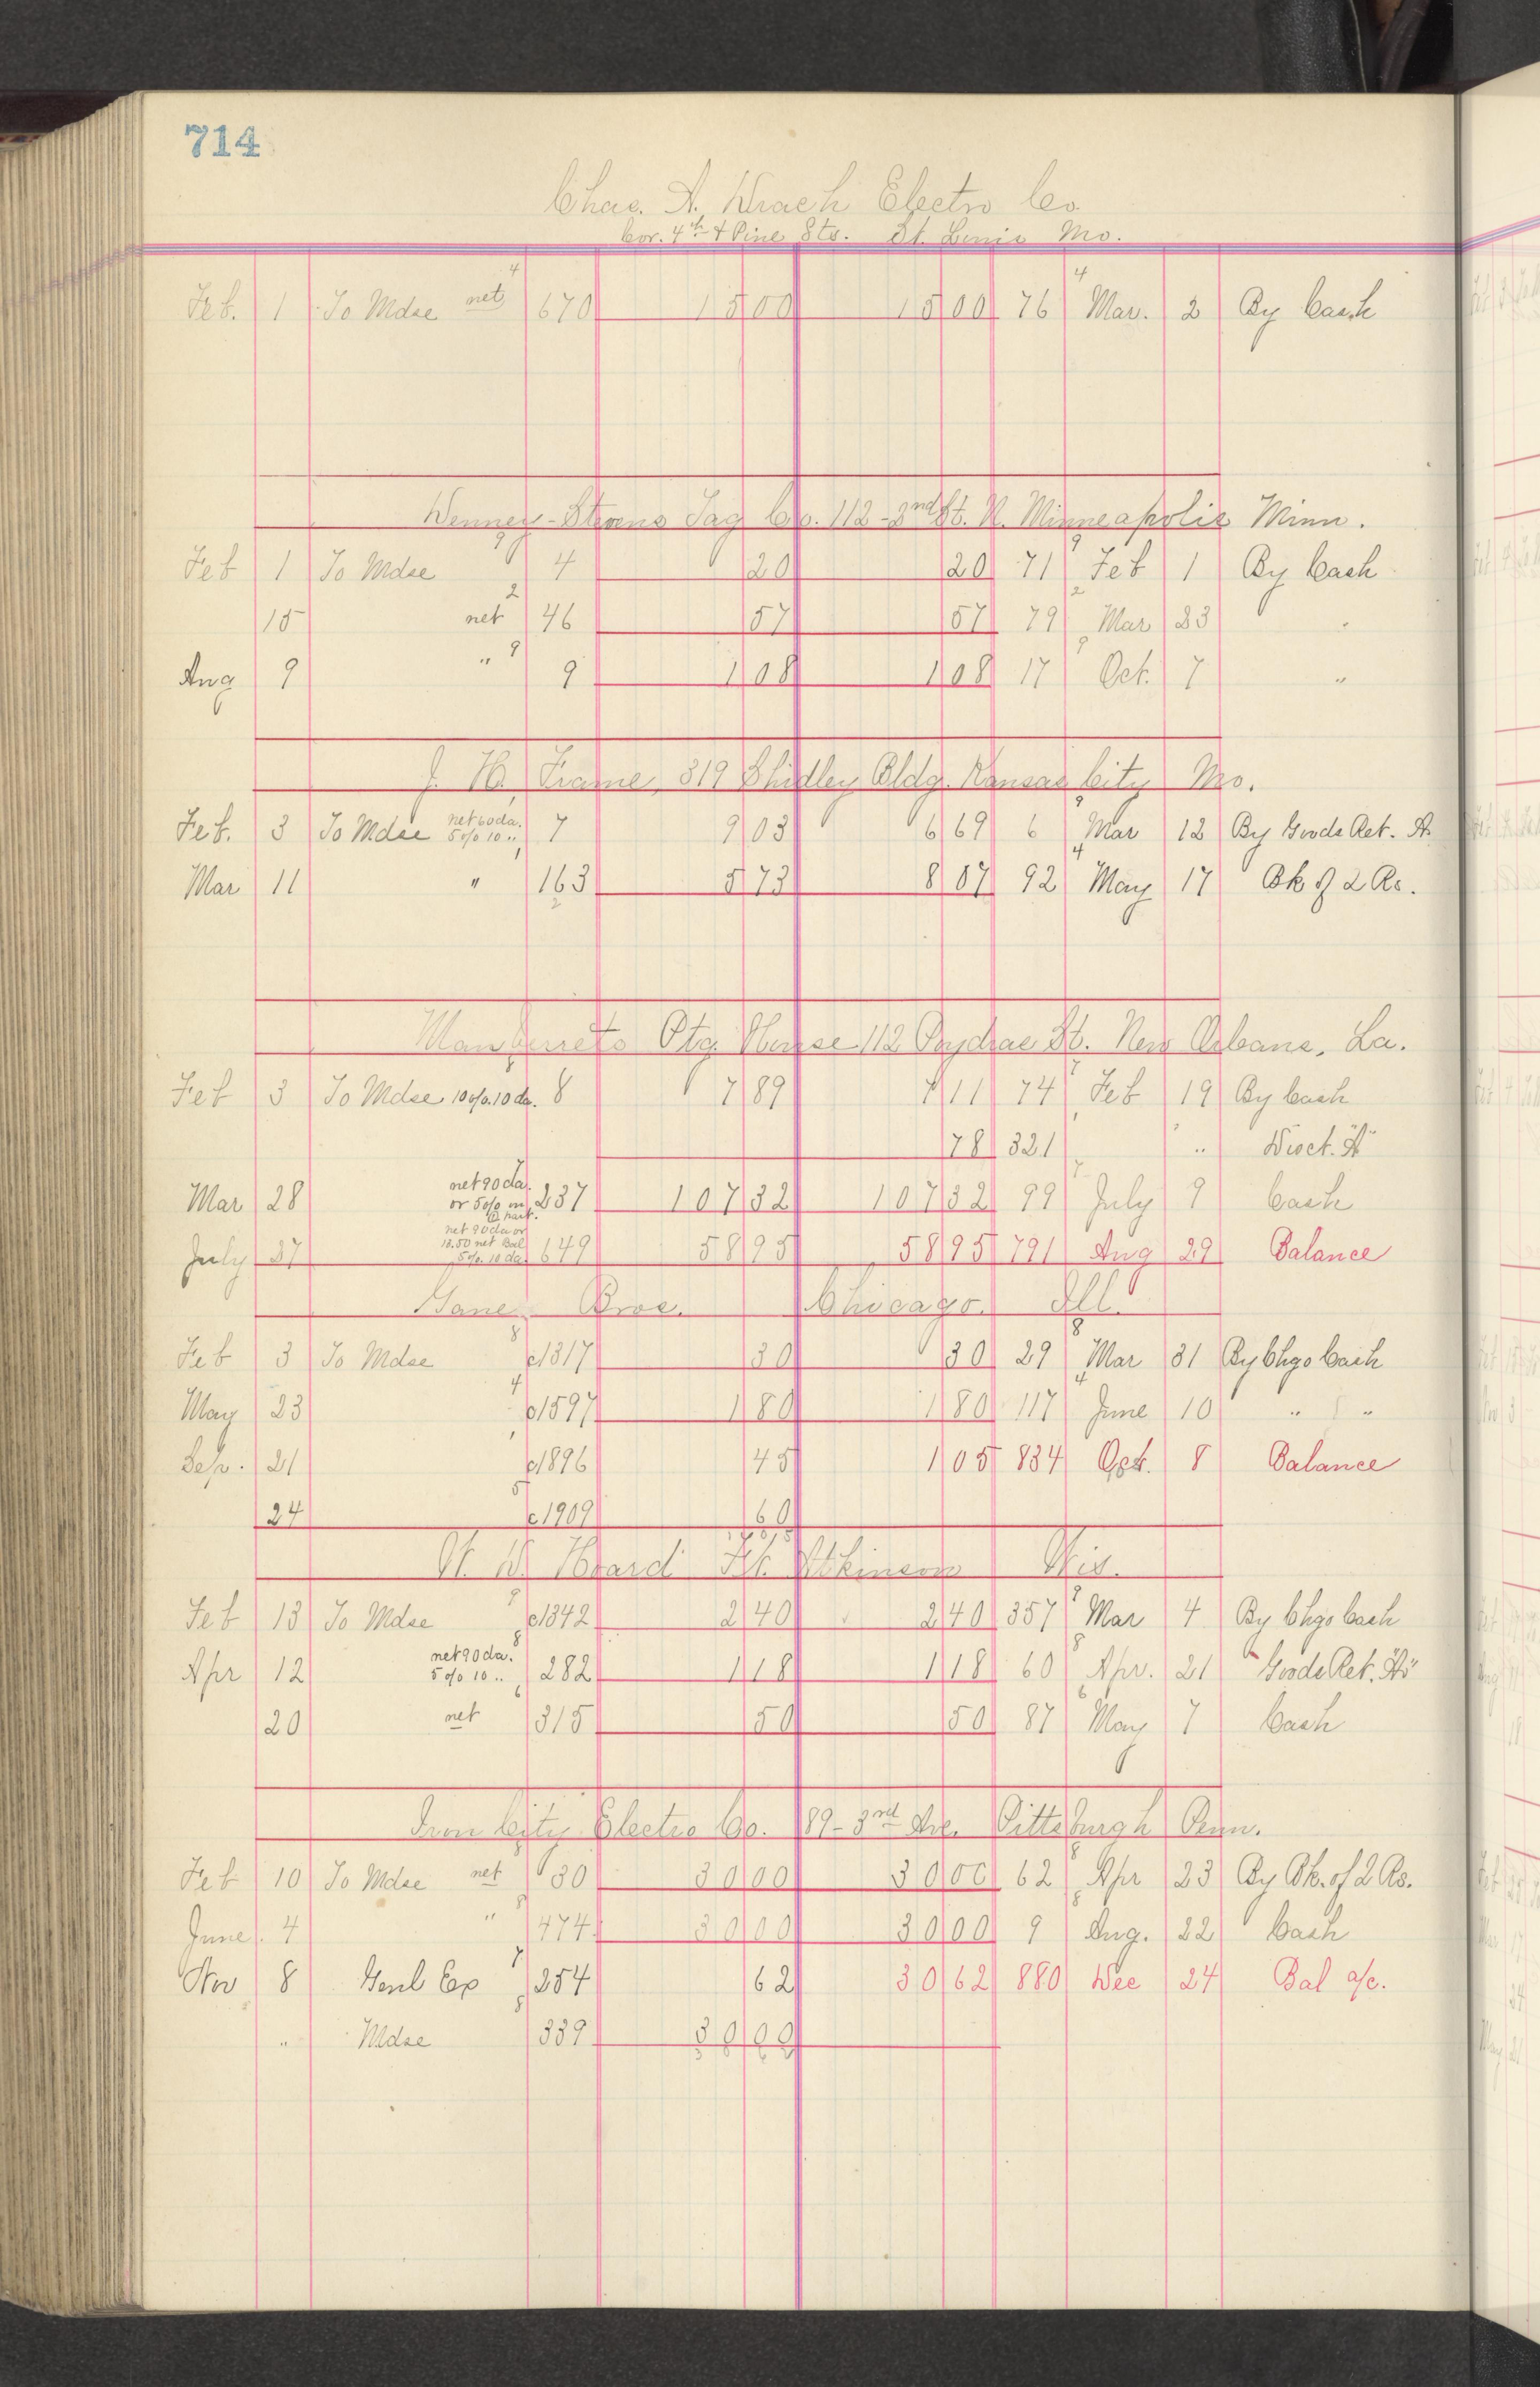 714
Chas. A. Drach Electro Co.
Cor. 4th & Pine Sts. St. Louis Mo.
Feb. 1 To Mdse net 4 670 15 00 15 00 76 4 Mar. 2 By Cash
Denney-Stevens Tag Co. 112-2nd St. N. Minneapolis Minn.
Feb 1 To Mdse 9 4 20 20 71 9 Feb 1 By Cash
15 net 2 46 57 57 79 2 Mar 23 "
Aug 9 " 9 9 1 08 1 08 17 9 Oct. 7 "
J. H. Frame, 319 Shidley Bldg. Kansas City Mo.
Feb. 3 To Mdse net 60 da. 5% 10 " 7 9 03 6 69 6 Mar 12 By Goods Ret.
Mar 11 " 163 5 73 8 07 92 4 May 17 Bk of 2 Rs.
Ptg. House 112 Poydras St. New Orleans, La.
Feb 3 To Mdse 10%.10 da. 8 7 89 7 11 74 Feb 19 By Cash
78 321 " Disct.
Mar 28 net 90 da. or 5% in 237 107 32 107 32 99 7 July 9 Cash
July 27 net 90 da or 18.50 net Bal 5%. 10 da. 649 58 95 58 95 791 Aug 29 Balance
Gane Bros. Chicago. Ill.
Feb 3 To Mdse 8 c1317 30 30 29 8 Mar 31 By Chgo Cash
May 23 4 c1597 1 80 1 80 117 4 June 10 " "
Sep. 21 c1896 45 1 05 834 Oct. 8 Balance
24 5 c1909 60
W. D. Hoard Ft. Atkinson Wis.
Feb 13 To Mdse 9 c1342 2 40 2 40 357 9 Mar 4 By Chgo Cash
Apr 12 net 90 da. 5% 10 " 8 282 1 18 1 18 60 8 Apr. 21 Goods Ret.
20 net 6 315 50 50 87 6 May 7 Cash
Iron City Electro Co. 89-3rd Ave. Pittsburgh Penn.
Feb 10 To Mdse net 30 30 00 30 00 62 8 Apr 23 By Bk. of 2 Rs.
June 4 " 8 474 30 00 30 00 9 Aug. 22 Cash
Nov 8 Genl Exp 7 254 62 30 62 880 Dec 24 Bal a/c.
" Mdse 8 339 30 00